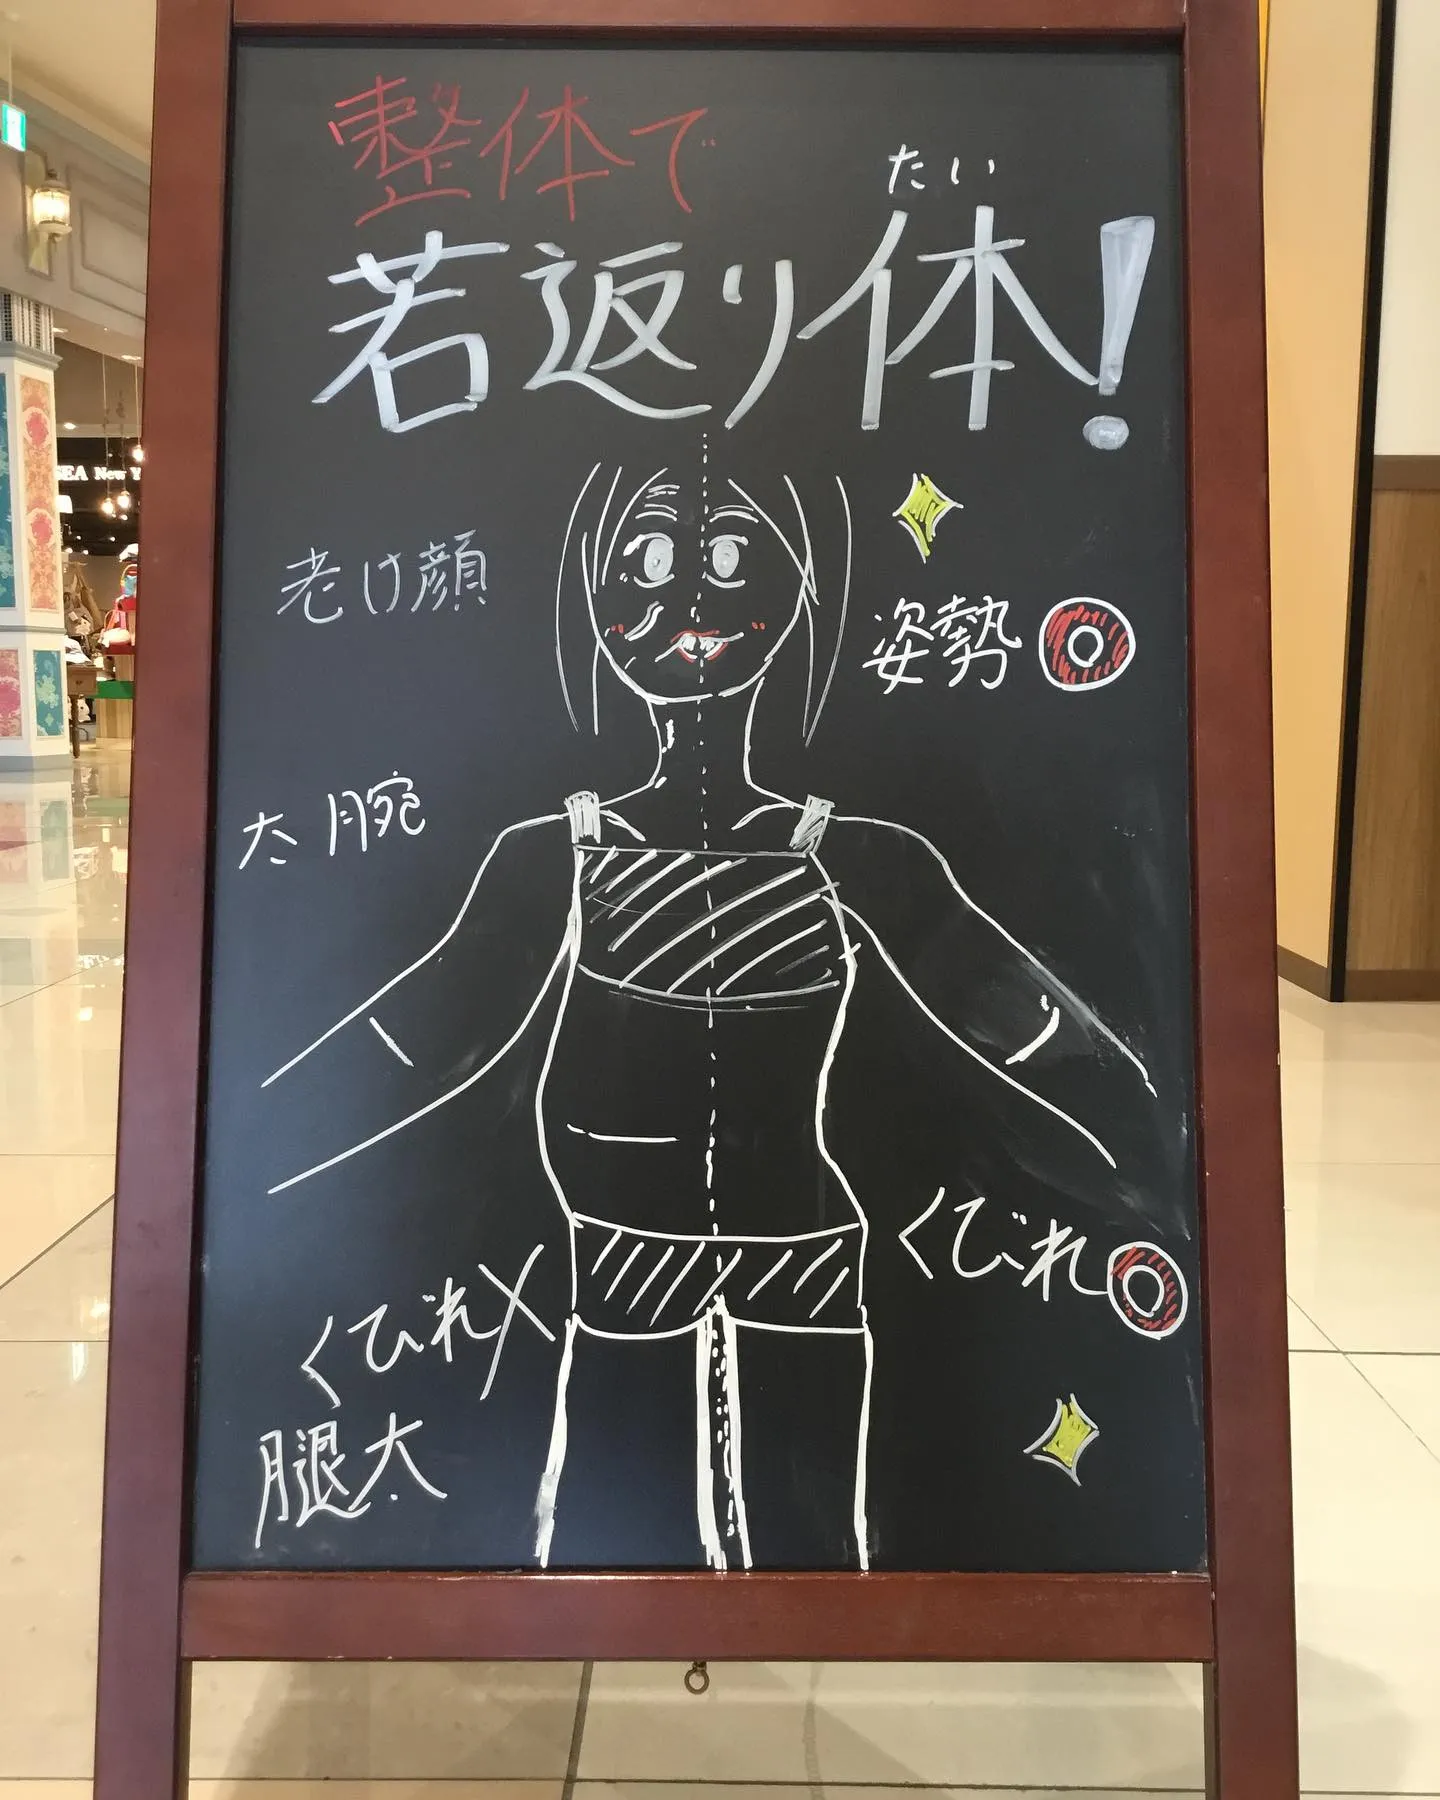 整体で
たい
若返り体!
老け顔
姿勢
太腕
くびれ
くびれ✕
腿太
New Y